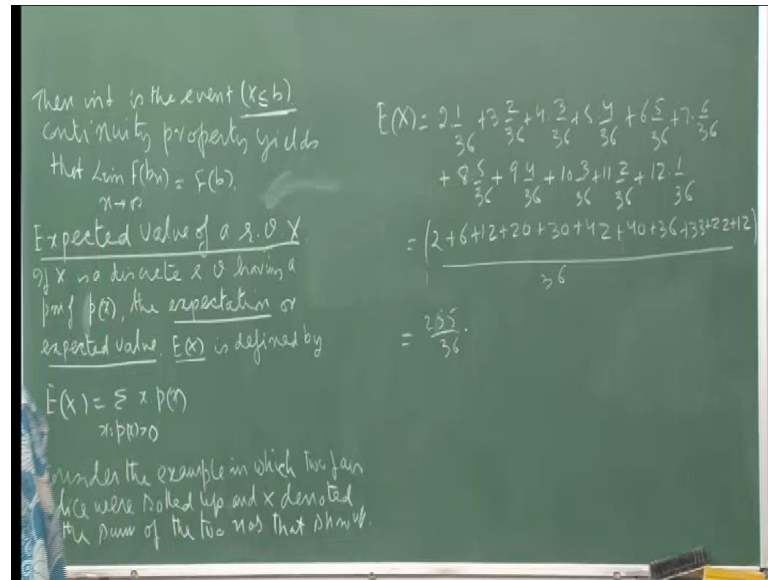 Then int is the event (X≤b)
continuity property yields
that Lim F(bn) = F(b).
n→∞
Expected value of a r.v X.
If X is a discrete r v having a
pmf p(x), the expectation or
expected value, E(X) is defined by
E(X) = Σ x p(x)
x:p(x)>0
Consider the example in which two fair
dice were rolled up and X denoted
the sum of the two nos that show up.
E(X) = 2.1/36 + 3 2/36 + 4.3/36 + 5.4/36 + 6 5/36 + 7.6/36
+ 8 5/36 + 9 4/36 + 10 3/36 + 11 2/36 + 12.1/36
= (2+6+12+20+30+42+40+36+33+22+12)
36
= 255/36.